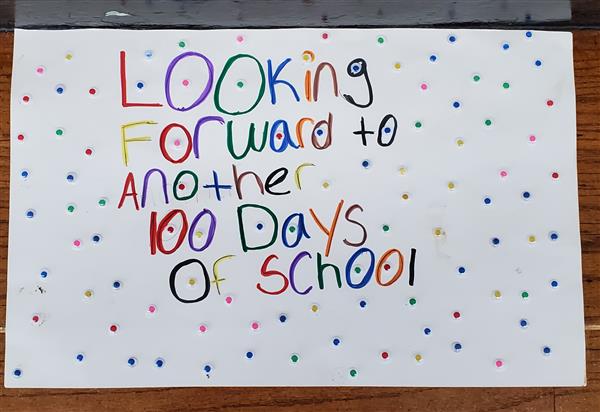 Looking
Forward to
Another
100 Days
Of School